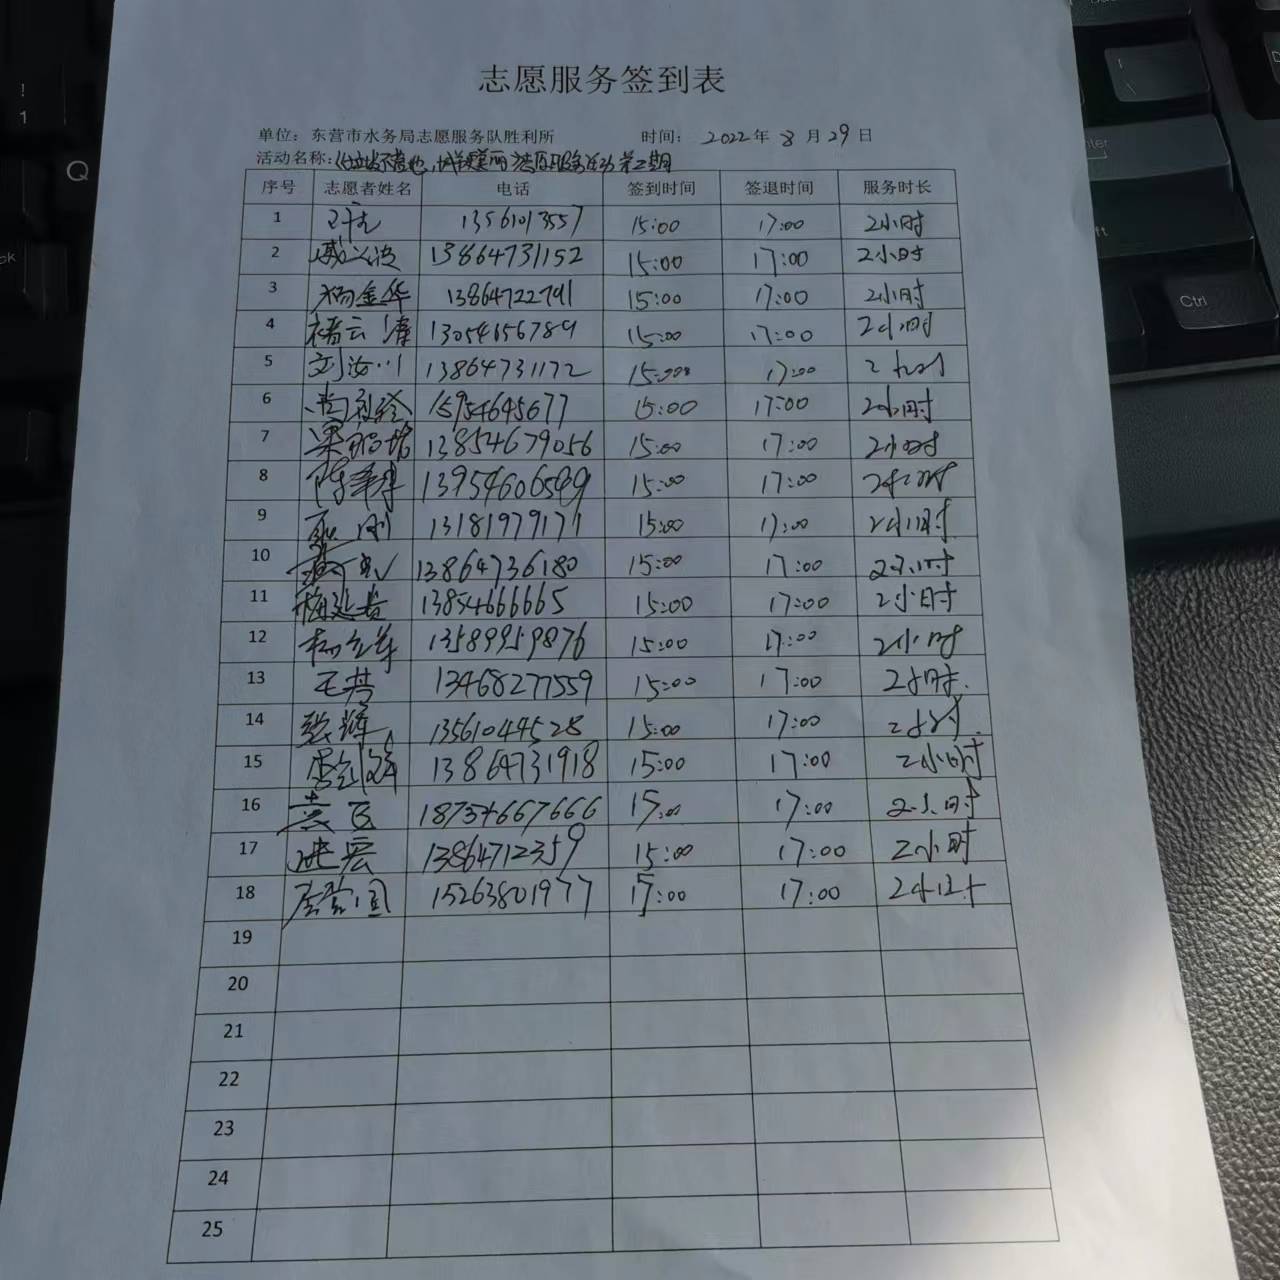 志愿服务签到表
单位：东营市水务局志愿服务队胜利所 时间：2022年8月29日
活动名称：让垃圾不落地，城市更美丽 志愿服务活动第二期
序号 志愿者姓名 电话 签到时间 签退时间 服务时长
1 13561013557 15:00 17:00 2小时
2 13864731152 15:00 17:00 2小时
3 杨金华 13864722791 15:00 17:00 2小时
4 褚云涛 13054656789 15:00 17:00 2小时
5 刘汝川 13864731172 15:00 17:00 2小时
6 15954645677 15:00 17:00 2小时
7 13854679056 15:00 17:00 2小时
8 13954606549 15:00 17:00 2小时
9 13181979171 15:00 17:00 2小时
10 13864736180 15:00 17:00 2小时
11 梅延春 13854666665 15:00 17:00 2小时
12 13589959876 15:00 17:00 2小时
13 王芸 13468277559 15:00 17:00 2小时.
14 张辉 13561044528 15:00 17:00 2小时.
15 13864731918 15:00 17:00 2小时
16 18754667666 15:00 17:00 2小时
17 13864712359 15:00 17:00 2小时
18 15263801977 15:00 17:00 2小时
19
20
21
22
23
24
25
!
1
Q
Ctrl